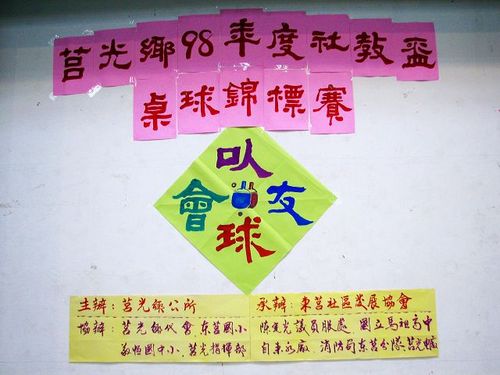 莒光鄉98年度社教盃
桌球錦標賽
以
會 友
球
主辦：莒光鄉公所
協辦：莒光鄉代會 东莒國小
敬恆國中小．莒光指揮部
承辦：東莒社區发展協會
光議員服處 國立馬祖高中
自來水廠．消防局东莒分隊．莒光